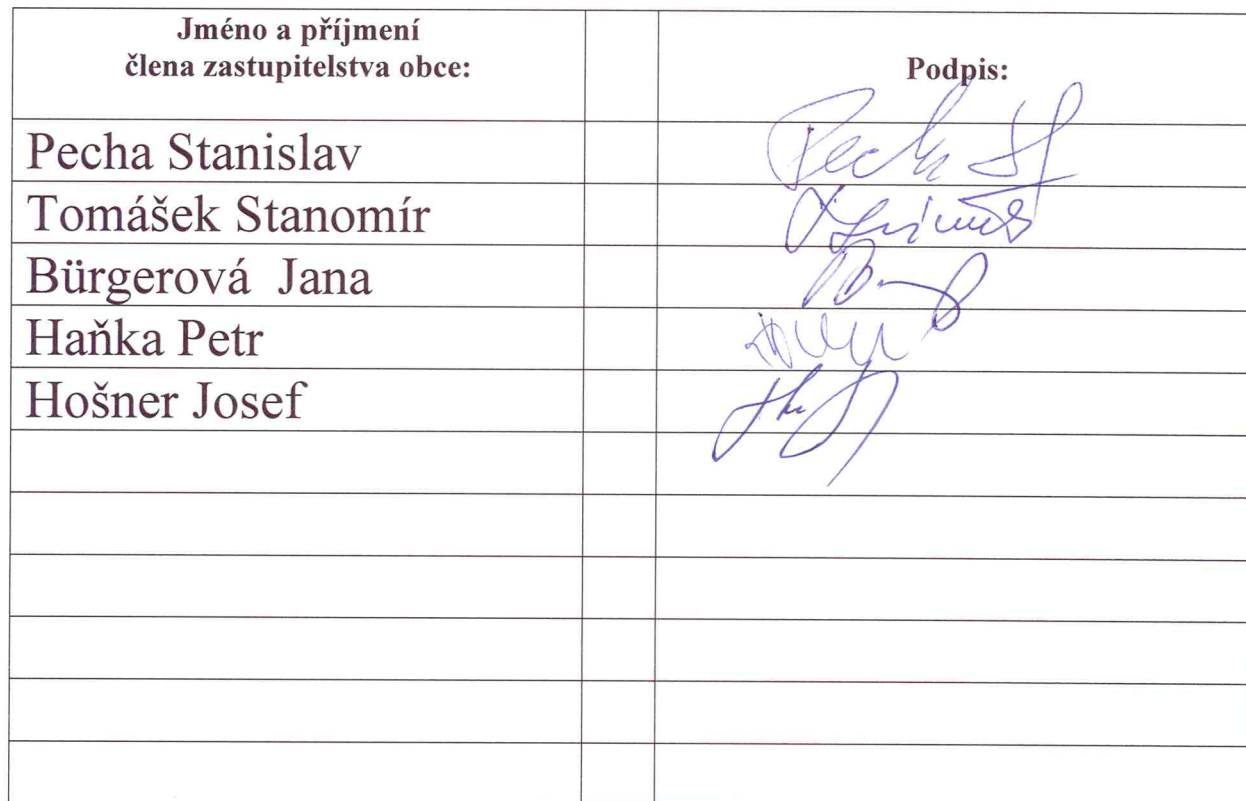 Jméno a příjmení
člena zastupitelstva obce:
Podpis:
Pecha Stanislav
Tomášek Stanomír
Bürgerová Jana
Haňka Petr
Hošner Josef